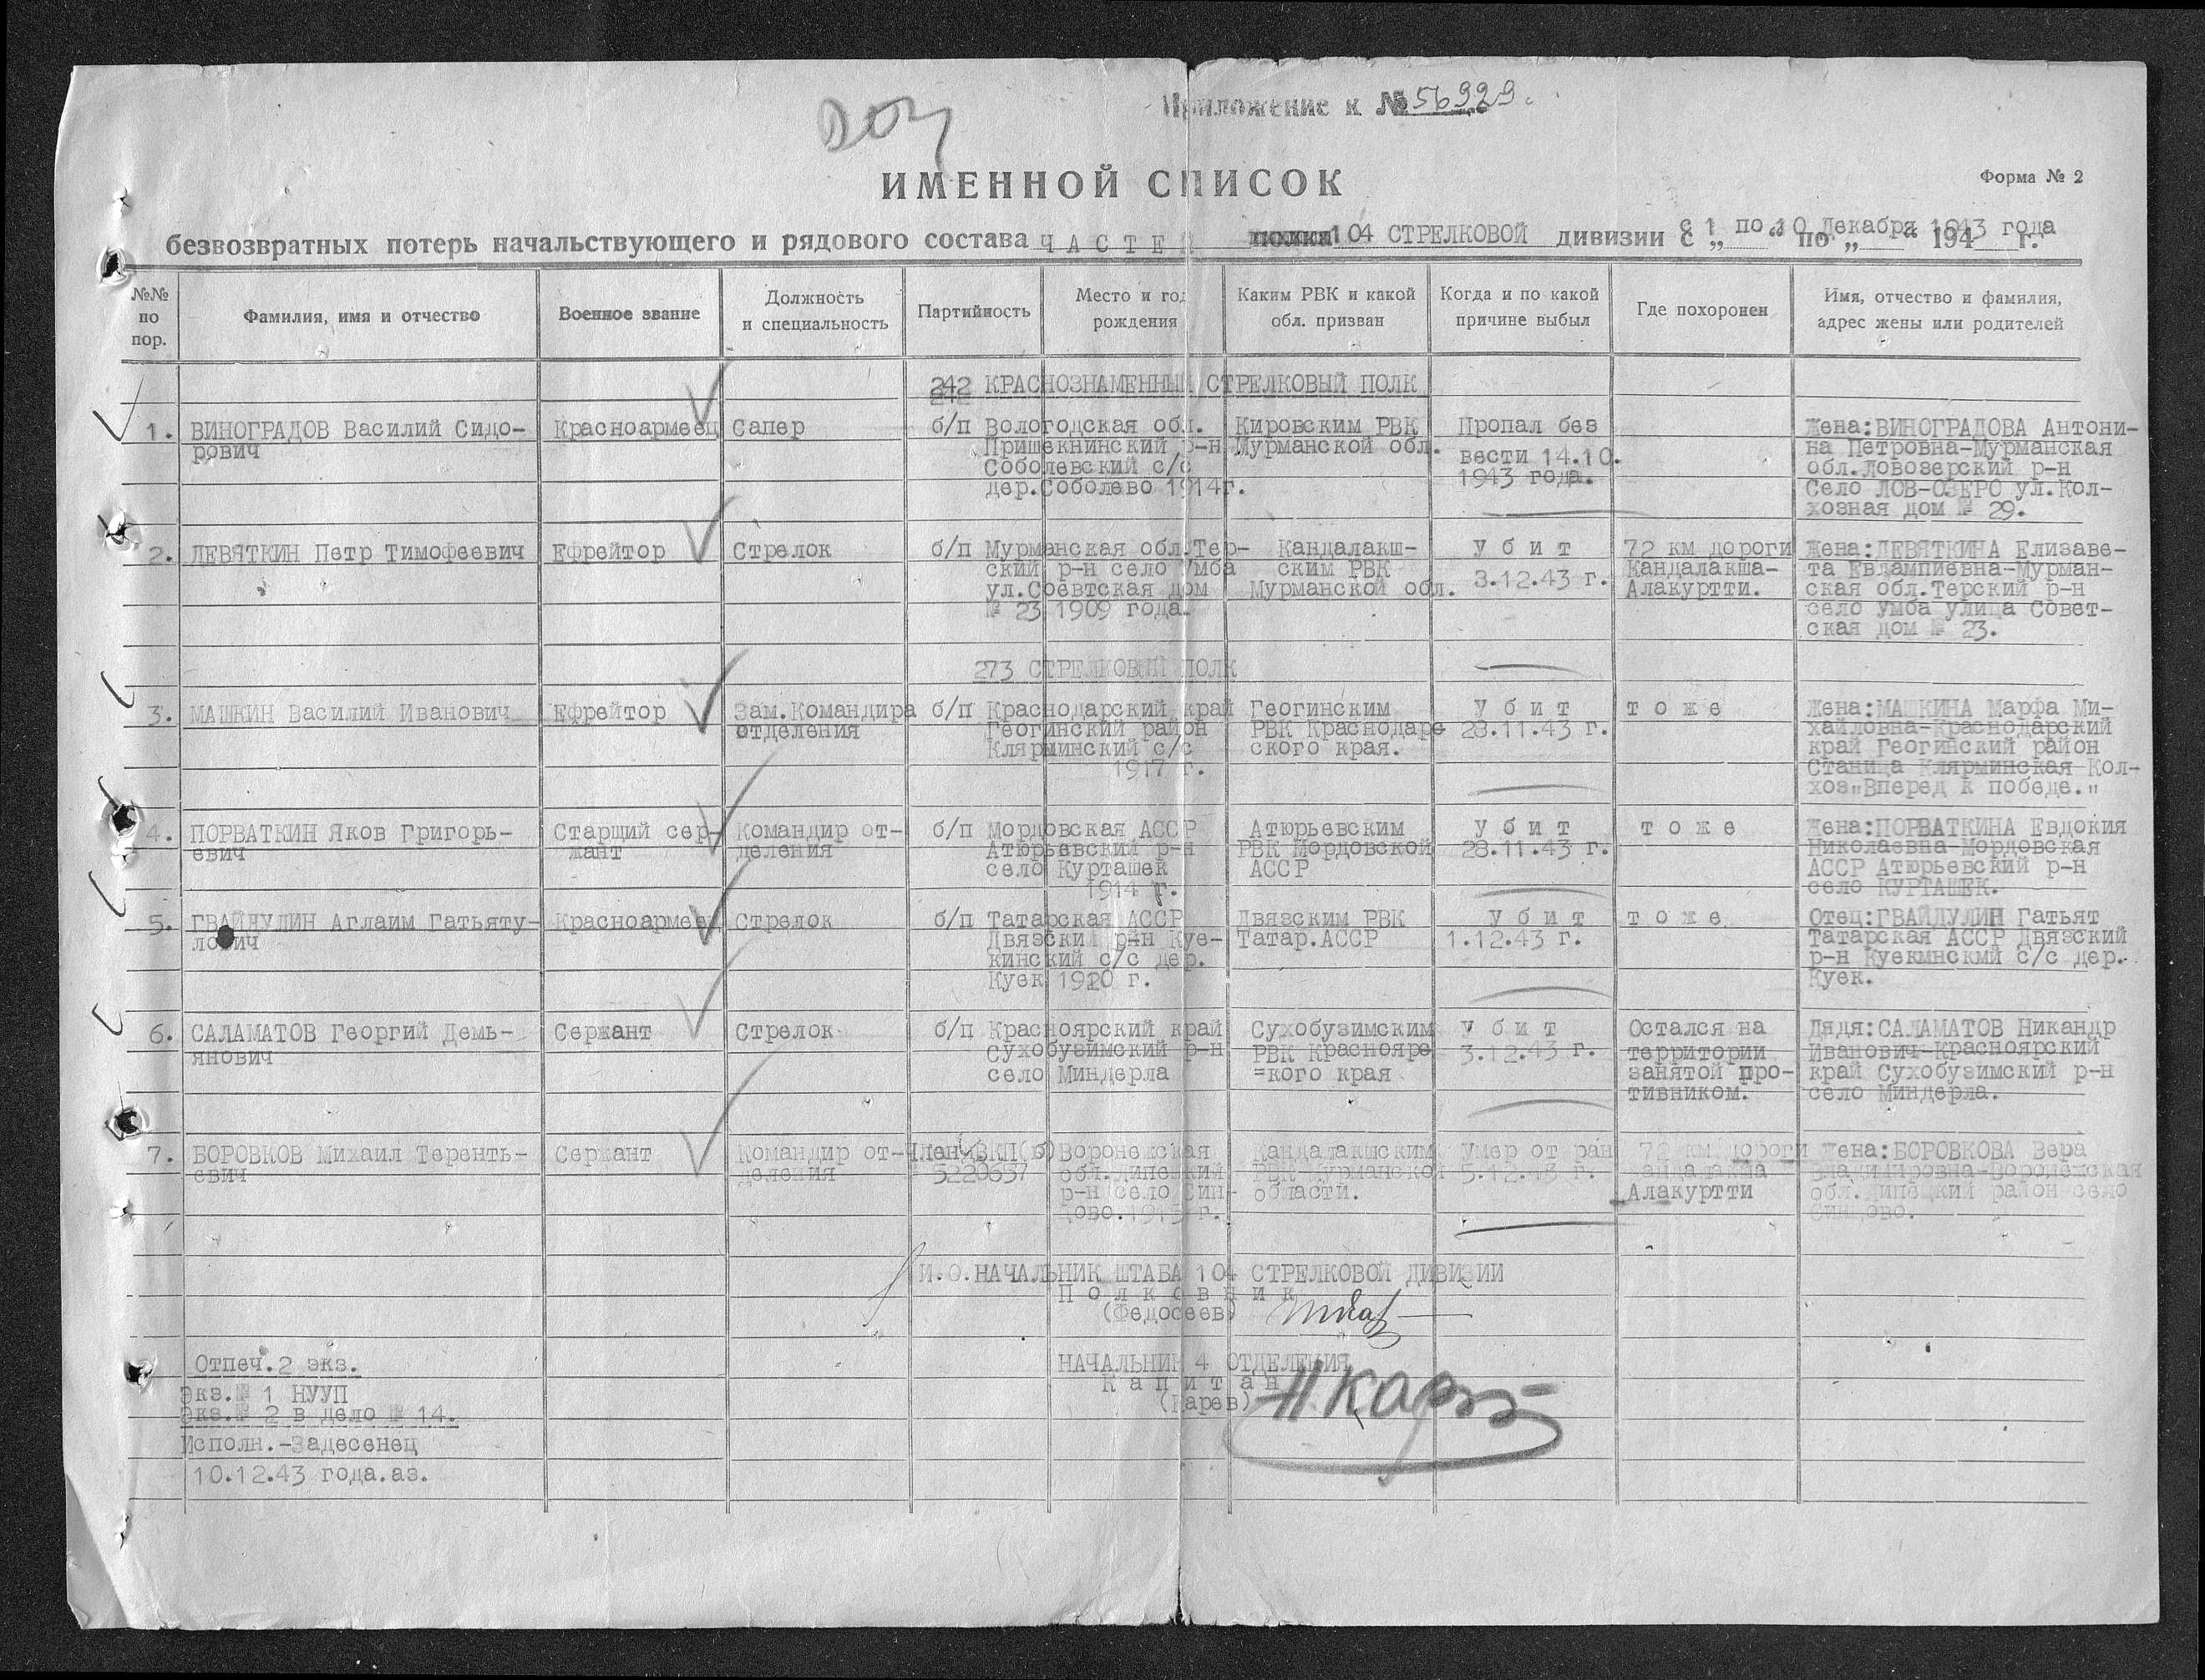 Приложение к № 56929.
ИМЕННОЙ СПИСОК
Форма № 2
безвозвратных потерь начальствующего и рядового состава ЧАСТЕЙ полка 104 СТРЕЛКОВОЙ дивизии с „ “ по „ “ 194 г.
с 1 по 10 Декабря 1943 года
№№ по пор.
Фамилия, имя и отчество
Военное звание
Должность и специальность
Партийность
Место и год рождения
Каким РВК и какой обл. призван
Когда и по какой причине выбыл
Где похоронен
Имя, отчество и фамилия, адрес жены или родителей
242 КРАСНОЗНАМЕННЫЙ СТРЕЛКОВЫЙ ПОЛК
1. ВИНОГРАДОВ Василий Сидо-
рович
Красноармеец
Сапер
б/п
Вологодская обл.
Пришекнинский р-н
Соболевский с/с
дер.Соболево 1914г.
Кировским РВК
Мурманской обл.
Пропал без
вести 14.10.
1943 года.
Жена:ВИНОГРАДОВА Антони-
на Петровна-Мурманская
обл.Ловозерский р-н
Село ЛОВ-ОЗЕРО ул.Кол-
хозная дом № 29.
2. ДЕВЯТКИН Петр Тимофеевич
Ефрейтор
Стрелок
б/п
Мурманская обл.Тер-
ский р-н село Умба
ул.Соевтская дом
№ 23 1909 года.
Кандалакш-
ским РВК
Мурманской обл.
У б и т
3.12.43 г.
72 км дороги
Кандалакша-
Алакуртти.
Жена:ДЕВЯТКИНА Елизаве-
та Евлампиевна-Мурман-
ская обл.Терский р-н
село Умба улица Совет-
ская дом № 23.
273 СТРЕЛКОВЫЙ ПОЛК
3. МАШКИН Василий Иванович
Ефрейтор
Зам.Командира
отделения
б/п
Краснодарский край
Геогинский район
Клярминский с/с
1917 г.
Геогинским
РВК Краснодарс
ского края.
У б и т
28.11.43 г.
т о ж е
Жена:МАШКИНА Марфа Ми-
хайловна-Краснодарский
край Геогинский район
Станица Клярминская Кол-
хоз„Вперед к победе."
4. ПОРВАТКИН Яков Григорь-
евич
Старший сер-
жант
Командир от-
деления
б/п
Мордовская АССР
Атюрьевский р-н
село Курташек
1914 г.
Атюрьевским
РВК Мордовской
АССР
У б и т
28.11.43 г.
т о ж е
Жена:ПОРВАТКИНА Евдокия
Николаевна-Мордовская
АССР Атюрьевский р-н
село КУРТАШЕК.
5. ГВАЙДУЛИН Аглаим Гатьяту-
лович
Красноармеец
Стрелок
б/п
Татарская АССР
Двязский р-н Куе-
кинский с/с дер.
Куек 1920 г.
Двязским РВК
Татар.АССР
У б и т
1.12.43 г.
т о ж е
Отец:ГВАЙДУЛИН Гатьят
Татарская АССР Двязский
р-н Куекинский с/с дер.
Куек.
6. САЛАМАТОВ Георгий Демь-
янович
Сержант
Стрелок
б/п
Красноярский край
Сухобузимский р-н
село Миндерла
Сухобузимским
РВК Краснояре
=кого края
У б и т
3.12.43 г.
Остался на
территории
занятой про-
тивником.
Дядя:САЛАМАТОВ Никандр
Иванович-Красноярский
край Сухобузимский р-н
село Миндерла.
7. БОРОВКОВ Михаил Теренть-
евич
Сержант
Командир от-
деления
Член ВКП(б)
5220637
Воронежская
обл.Липецкий
р-н село Син-
дово.1913 г.
Кандалакшским
РВК Мурманской
области.
Умер от ран
5.12.43 г.
72 км дороги
Кандалакша
Алакуртти
Жена:БОРОВКОВА Вера
Владимировна-Воронежская
обл.Липецкий район село
Синдово.
И.О.НАЧАЛЬНИК ШТАБА 104 СТРЕЛКОВОЙ ДИВИЗИИ
П о л к о в н и к
(Федосеев)
НАЧАЛЬНИК 4 ОТДЕЛЕНИЯ
К а п и т а н
(Карев)
Отпеч.2 экз.
Экз.№ 1 НУУП
Экз.№ 2 в дело № 14.
Исполн.-Задесенец
10.12.43 года.аз.